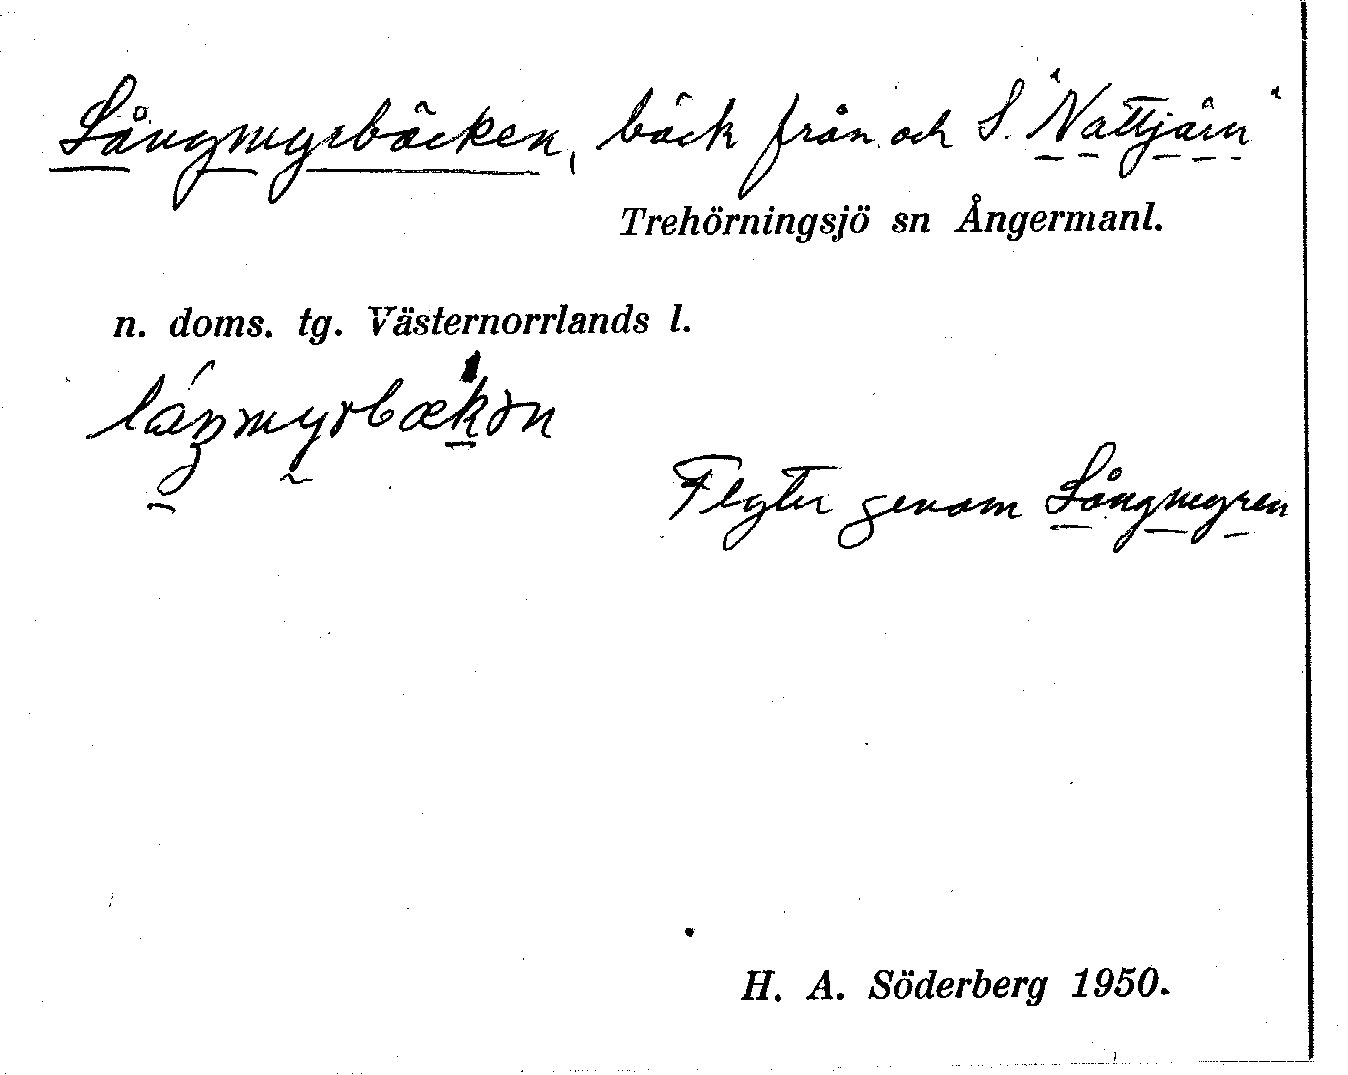 Långmyrbäcken, bäck från och S. "Nattjärn"
Trehörningsjö sn Ångermanl.
n. doms. tg. Västernorrlands l.
låŋmyrbækən
Flyter genom Långmyren
H. A. Söderberg 1950.